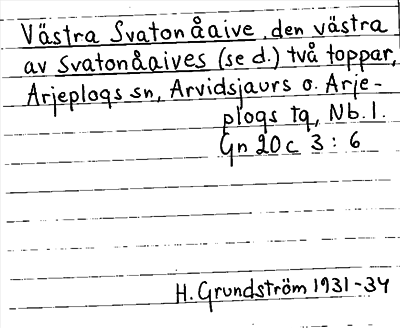 Västra Svatonåaive, den västra
av Svatonåaives (se d.) två toppar,
Arjeplogs sn, Arvidsjaurs o. Arje-
plogs tg, Nb. l.
Gn 20 c 3 : 6
H. Grundström 1931-34